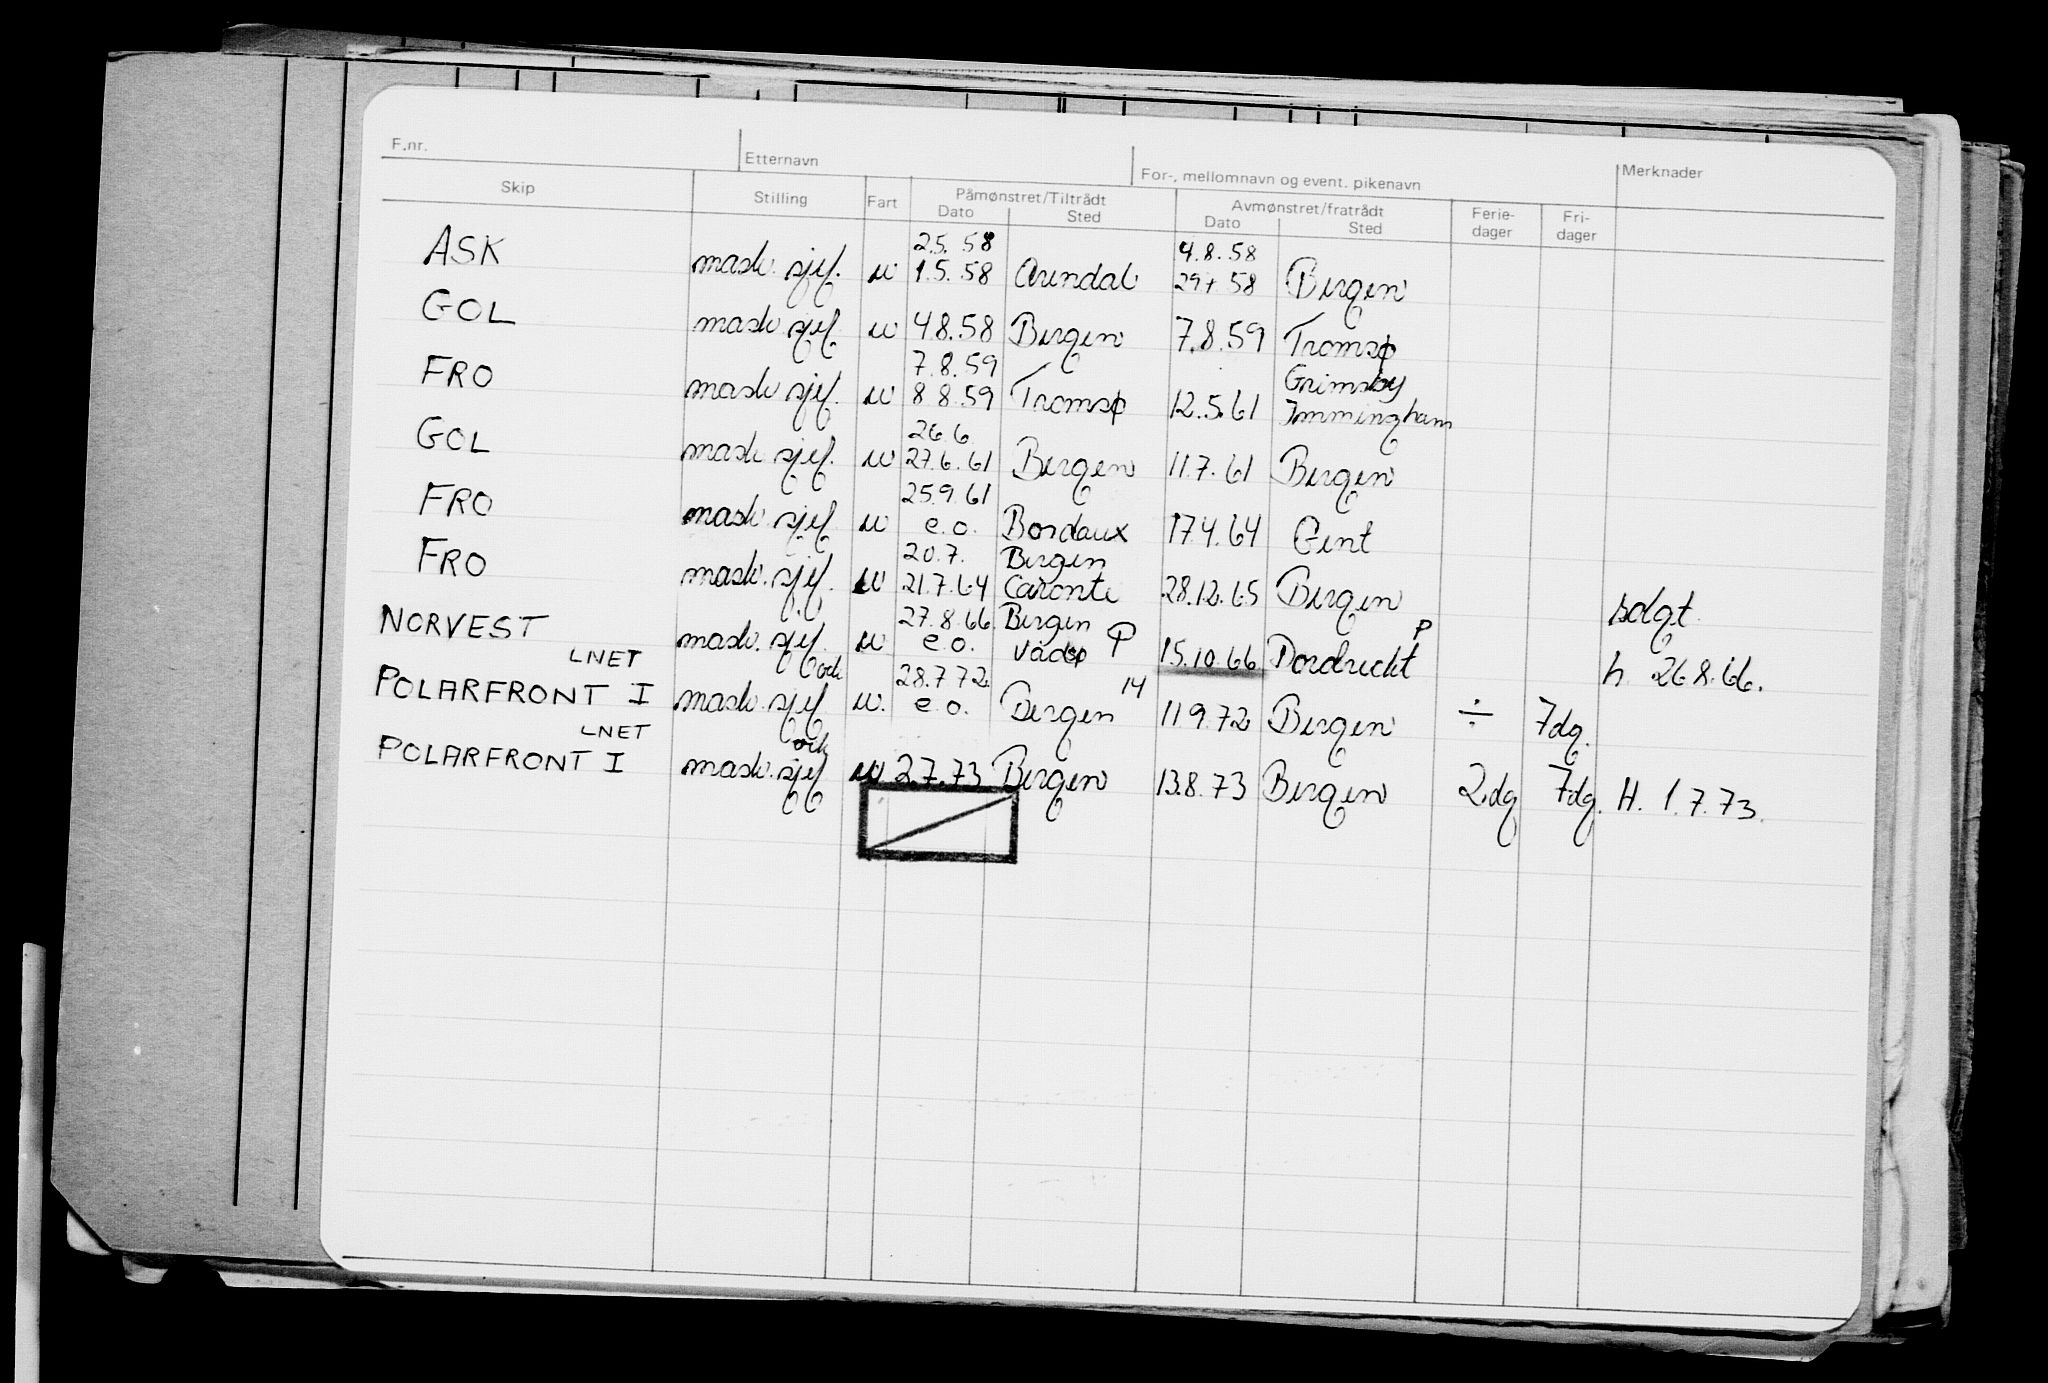 F.nr. Etternavn For-, mellomnavn og event. pikenavn Merknader
Skip Stilling Fart Påmønstret/Tiltrådt Avmønstret/fratrådt Ferie- Fri-
Dato Sted Dato Sted dager dager
25. 58 4.8.58
ASK mask. sjef. u 1.5.58 Arendal 29+ 58 Bergen
GOL mask sjef u 4 8.58 Bergen 7.8.59 Tromsø
7.8.59 Grimsby
FRO mask sjef. u 8 8.59 Tromsø 12.5.61 Immingham
26.6
GOL mask sjef. u 27.6.61 Bergen 11.7.61 Bergen
25.9.61
FRO mask. sjef u e.o. Bordaux 17.4.64 Gent
20.7. Bergen
FRO mask. sjef. u 21.7.64 Caronte 28.12.65 Bergen sdgt.
27.8.66. Bergen
NORVEST mask. sjef. u e.o. Vadsø P 15.10.66 Dordrecht P h. 26.8.66.
LNET 28.7 72.
POLARFRONT I mask. sjef u. e.o. Bergen 14 11 9.72 Bergen ÷ 7dg.
LNET
POLARFRONT I mask. sjef u 2.7.73 Bergen 13.8.73 Bergen 2.dg 7dg. H. 1.7.73.